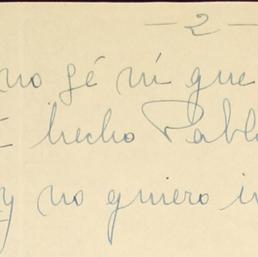 — 2 —
no sé ni que
hecho Pabl
y no quiero i